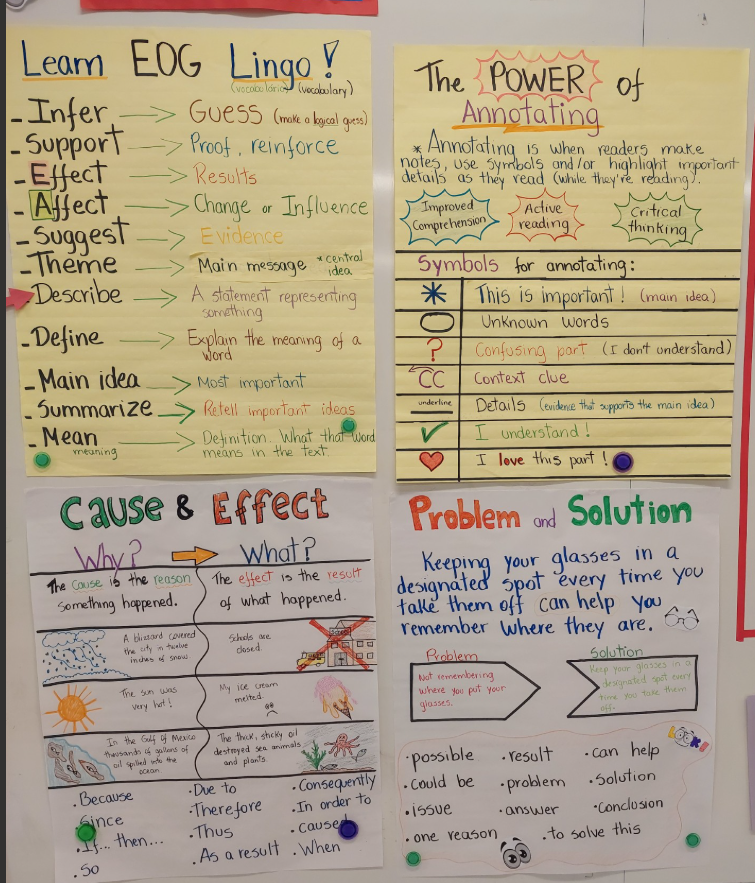 Learn EOG Lingo!
(vocabulario) (vocabulary)
- Infer → Guess (make a logical guess)
- Support → Proof, reinforce
- Effect → Results
- Affect → Change or Influence
- Suggest → Evidence
- Theme → Main message *central idea
- Describe → A statement representing
something
- Define → Explain the meaning of a
word
- Main idea → Most important
- Summarize → Retell important ideas
- Mean → Definition. What that word
meaning means in the text.
The POWER of
Annotating
* Annotating is when readers make
notes, use symbols and/or highlight important
details as they read (while they're reading).
Improved Comprehension
Active reading
Critical thinking
Symbols for annotating:
This is important! (main idea)
Unknown words
? Confusing part (I don't understand)
CC Context clue
underline Details (evidence that supports the main idea)
✓ I understand!
I love this part!
Cause & Effect
Why? What?
The cause is the reason
something happened.
The effect is the result
of what happened.
A blizzard covered
the city in twelve
inches of snow.
Schools are
closed.
The sun was
very hot!
My ice cream
melted.
In the Gulf of Mexico
thousands of gallons of
oil spilled into the
ocean
The thick, sticky oil
destroyed sea animals
and plants.
. Because
Since
. If... then...
. So
. Due to
. Therefore
. Thus
. As a result
. Consequently
. In order to
. caused
. When
Problem and Solution
Keeping your glasses in a
designated spot every time you
take them off can help you
remember where they are.
Problem
Not remembering
where you put your
glasses.
Solution
Keep your glasses in a
designated spot every
time you take them
off.
LOOK!
. possible
. could be
. issue
. one reason
. result
. problem
. answer
. to solve this
. can help
. Solution
. Conclusion